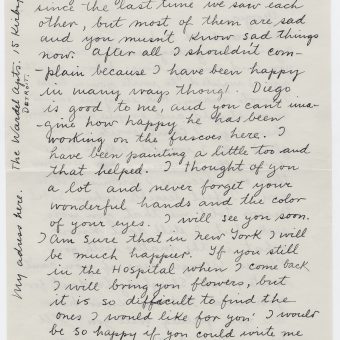 since the last time we saw each
other, but most of them are sad
and you musn't know sad things
now. After all I shouldn't com-
plain because I have been happy
in many ways though. Diego
is good to me, and you can't ima-
gine how happy he has been
working on the frescoes here. I
have been painting a little too and
that helped. I thought of you
a lot and never forget your
wonderful hands and the color
of your eyes. I will see you soon.
I am sure that in New York I will
be much happier. If you still
in the Hospital when I come back
I will bring you flowers, but
it is so difficult to find the
ones I would like for you. I would
be so happy if you could write me
My adress here. The Wardel Apts. 15 Kirby
DETROIT.